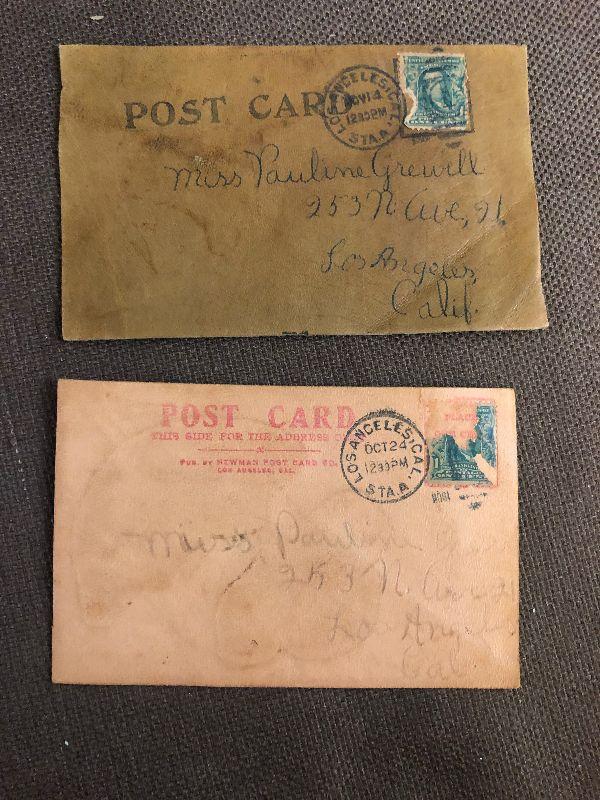 POST CARD
LOS ANGELES, CAL.
NOV 14
12 30 PM
STA. A
Miss Pauline Grewill
253 N Ave, 21,
Los Angeles,
Calif.
POST CARD
THIS SIDE FOR THE ADDRESS
PUB. BY NEWMAN POST CARD CO.
LOS ANGELES, CAL.
PLACE
LOS ANGELES, CAL.
OCT 24
12 30 PM
STA. A
Miss Pauline
253 N Ave 21
Los Angel
Cal